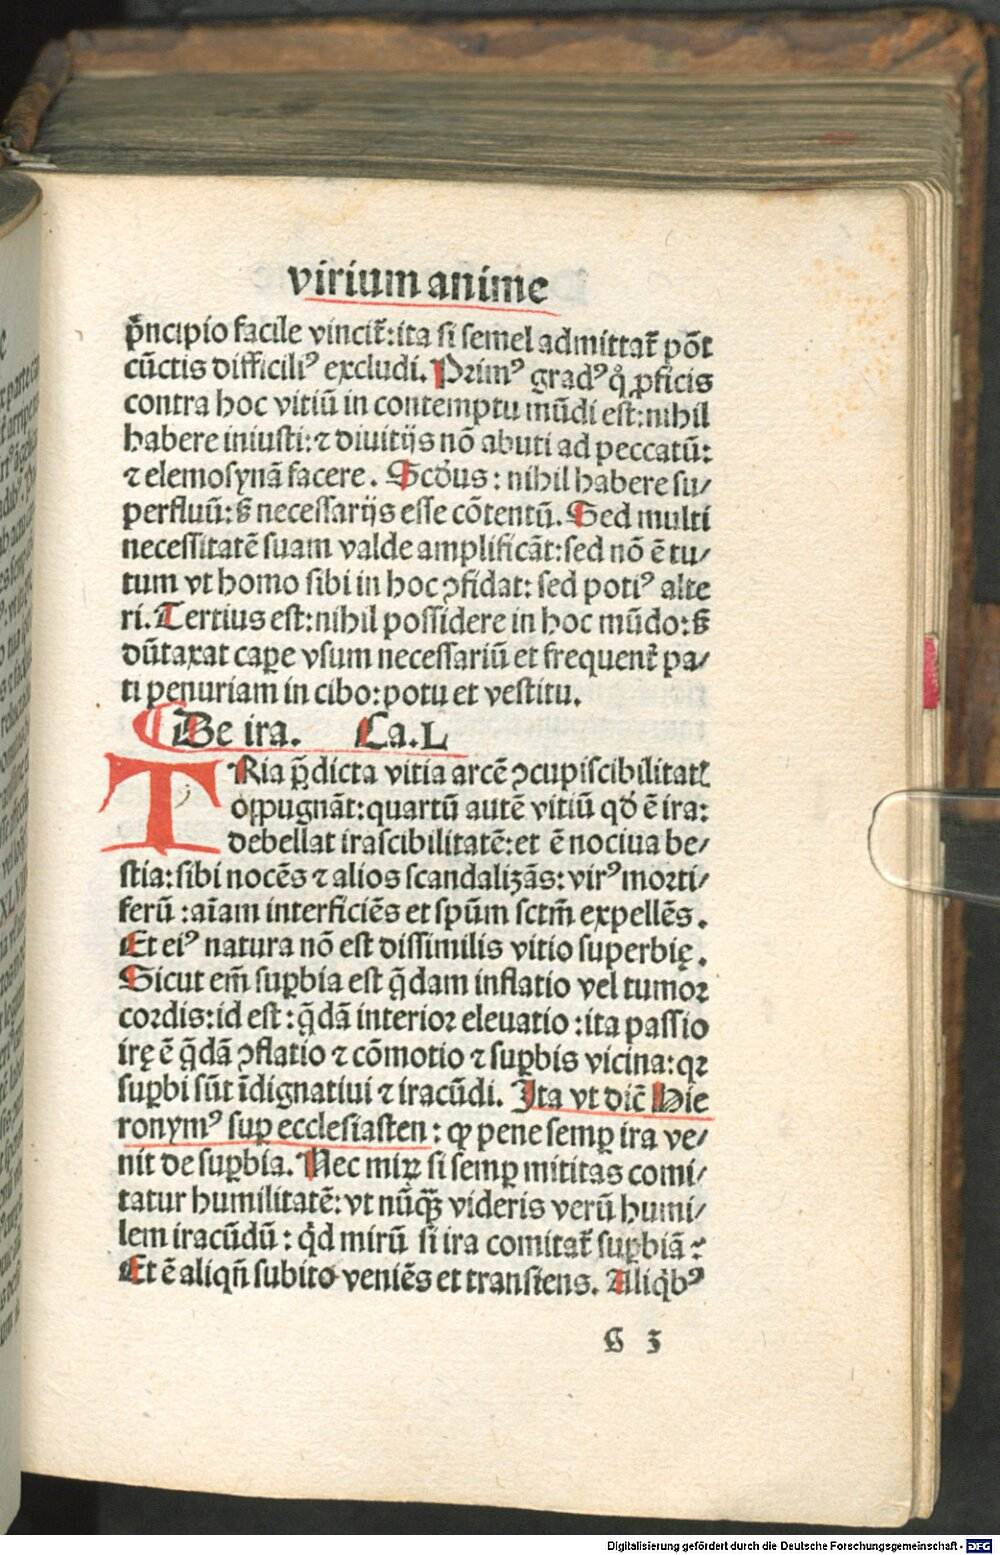 virium anime
p̄ncipio facile vincit̄:ita si semel admittat̄ pōt
cūctis difficiliꝰ excludi. Primꝰ gradꝰ q̇ ꝓficis
contra hoc vitiū in contemptu mūdi est:nihil
habere iniusti:⁊ diuitijs nō abuti ad peccatū:
⁊ elemosynā facere. Scd̄us: nihil habere su/
perfluū:ß necessarijs esse cōtentū. Sed multi
necessitatē suam valde amplificāt:sed nō ē tu/
tum vt homo sibi in hoc ꝯfidat: sed potiꝰ alte
ri. Tertius est:nihil possidere in hoc mūdo:ß
dūtaxat cape̲ vsum necessariū et frequent̄ pa/
ti penuriam in cibo:potu et vestitu.
De ira. Ca.L
TRia p̄dicta vitia arcē ꝯcupiscibilitatꝭ
oppugnāt:quartū autē vitiū qd̄ ē ira:
debellat irascibilitatē:et ē nociua be/
stia:sibi nocēs ⁊ alios scandalizās: virꝰ morti/
ferū :aīam interficiēs et spūm sctm̄ expellēs.
Et eiꝰ natura nō est dissimilis vitio superbię.
Sicut em̄ suꝑbia est q̄dam inflatio vel tumor
cordis:id est: q̄dā interior eleuatio :ita passio
irę ē q̄dā ꝯflatio ⁊ cōmotio ⁊ suꝑbis vicina:qꝛ
suꝑbi sūt īdignatiui ⁊ iracūdi. Ita vt dic̄ Hie
ronymꝰ suꝑ ecclesiasten: ꝙ pene semꝑ ira ve/
nit de suꝑbia. Nec miꝝ si semꝑ mititas comi/
tatur humilitatē: vt nūꝗ̄ videris verū humi/
lem iracūdū: qḋ mirū si ira comitat̄ suꝑbiā?
Et ē aliqn̄ subito veniēs et transiens. Aliqḃꝰ
G 3
Digitalisierung gefördert durch die Deutsche Forschungsgemeinschaft - DFG